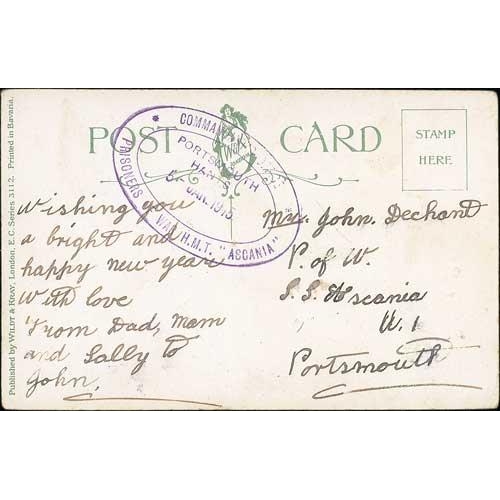 POST CARD
STAMP
HERE
COMMANDANT
PORTSMOUTH
HANTS
JAN. 1915
PRISONERS WAR, H.M.T. "ASCANIA"
Wishing you
a bright and
happy new year
With love
From Dad, Mam
and Sally to
John.
Mr. John. Dechant
P. of W.
S.S. Ascania
W. 1
Portsmouth
Published by WILDT & KRAY, London, E.C. Series 3112. Printed in Bavaria.